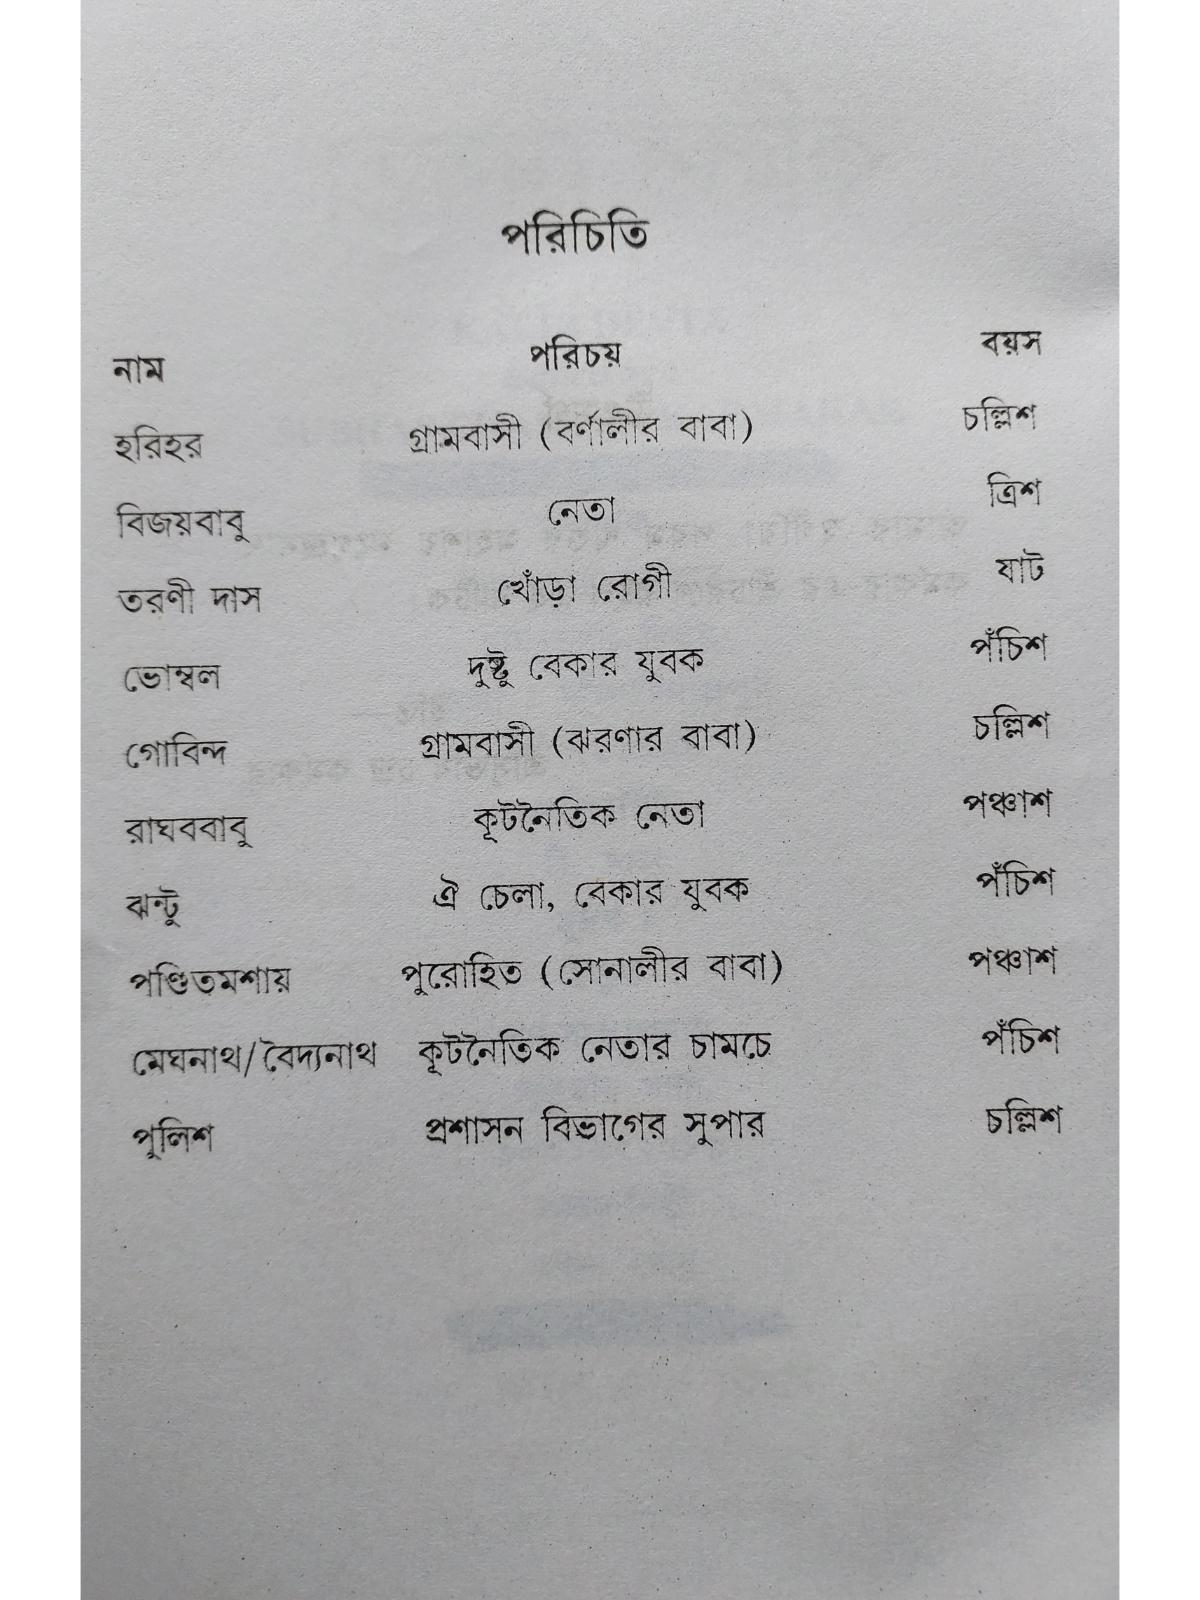 পরিচিতি
নাম পরিচয় বয়স
হরিহর গ্রামবাসী (বর্ণালীর বাবা) চল্লিশ
বিজয়বাবু নেতা ত্রিশ
তরণী দাস খোঁড়া রোগী ষাট
ভোম্বল দুষ্টু বেকার যুবক পঁচিশ
গোবিন্দ গ্রামবাসী (ঝরণার বাবা) চল্লিশ
রাঘববাবু কূটনৈতিক নেতা পঞ্চাশ
ঝন্টু ঐ চেলা, বেকার যুবক পঁচিশ
পণ্ডিতমশায় পুরোহিত (সোনালীর বাবা) পঞ্চাশ
মেঘনাথ/বৈদ্যনাথ কূটনৈতিক নেতার চামচে পঁচিশ
পুলিশ প্রশাসন বিভাগের সুপার চল্লিশ